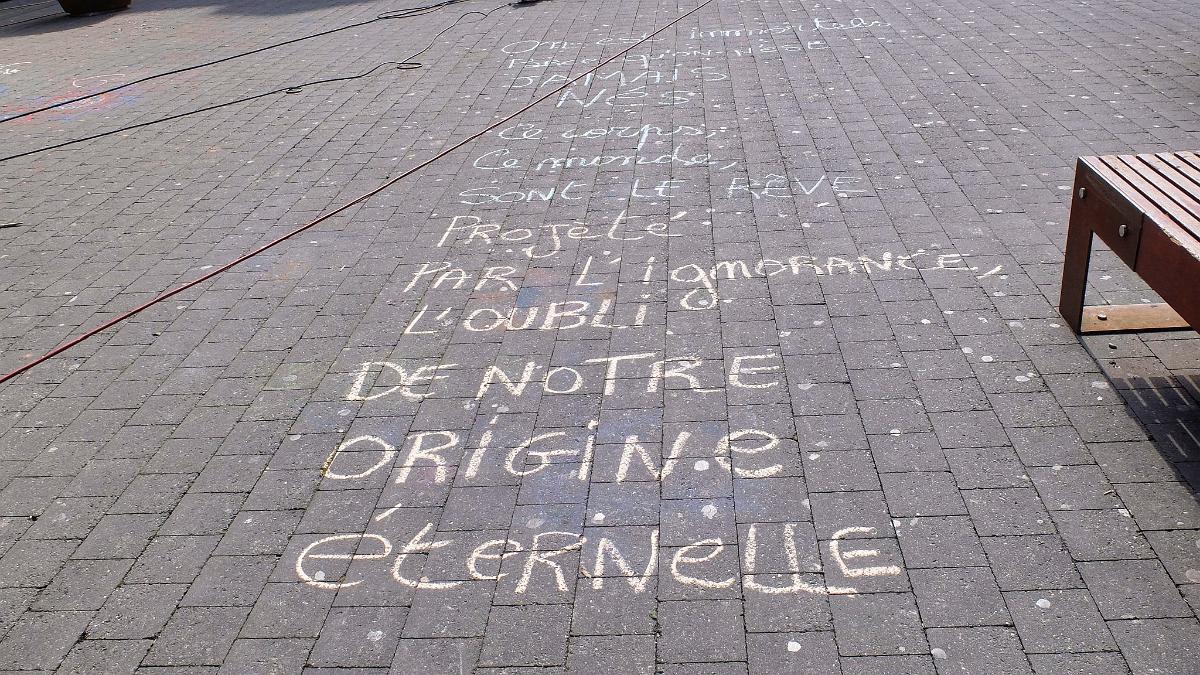 On est immortels
PARCE QU'ON N'EST
JAMAIS
NÉS
Ce corps,
Ce monde,
SONT LE RÊVE
PROJeté
PAR L'ignORANCE,
L'OUBLi
DE NOTRE
ORiGiNe
éTeRNeLLE